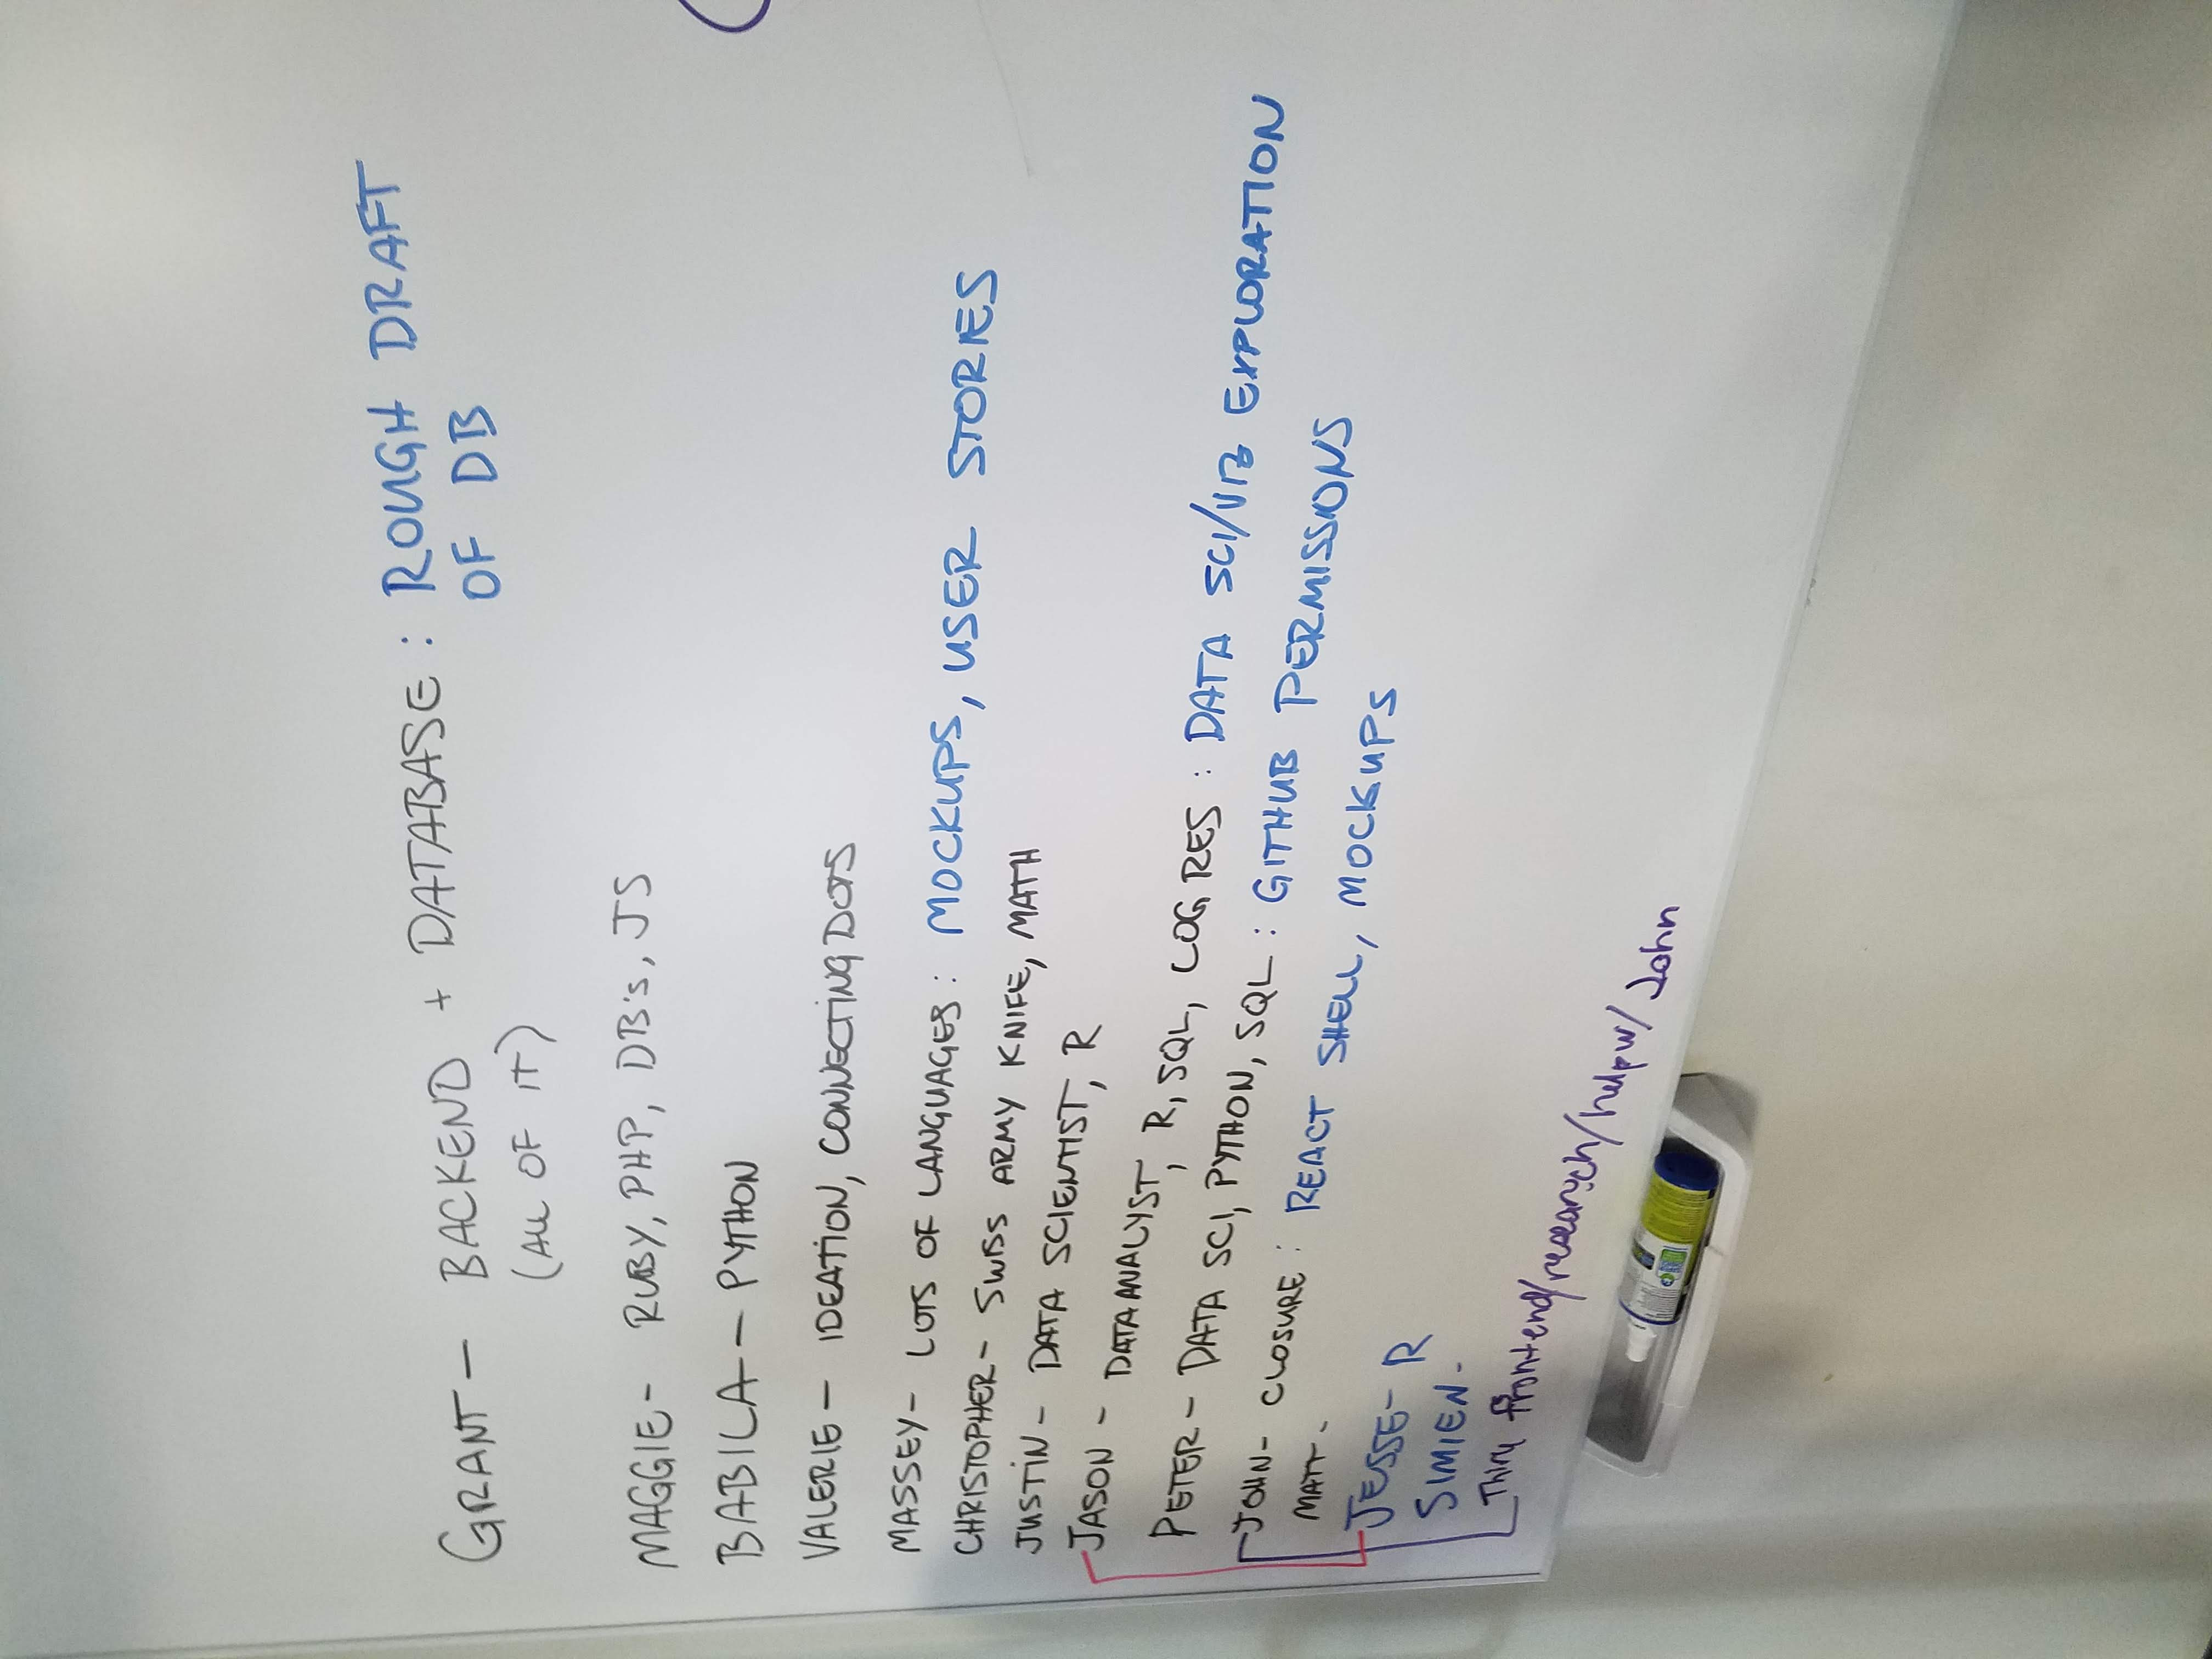 GRANT - BACKEND + DATABASE : ROUGH DRAFT
(ALL OF IT) OF DB
MAGGIE - RUBY, PHP, DB's, JS
BABILA - PYTHON
VALERIE - IDEATION, CONNECTING DOTS
MASSEY - LOTS OF LANGUAGES : MOCKUPS, USER STORIES
CHRISTOPHER - SWISS ARMY KNIFE, MATH
JUSTIN - DATA SCIENTIST, R
JASON - DATA ANALYST, R, SQL, LOG RES : DATA SCI/VIZ EXPLORATION
PETER - DATA SCI, PYTHON, SQL : GITHUB PERMISSIONS
JOHN - CLOSURE : REACT SHELL, MOCKUPS
MATT -
JESSE - R
SIMIEN -
frontend/research/help w/ John